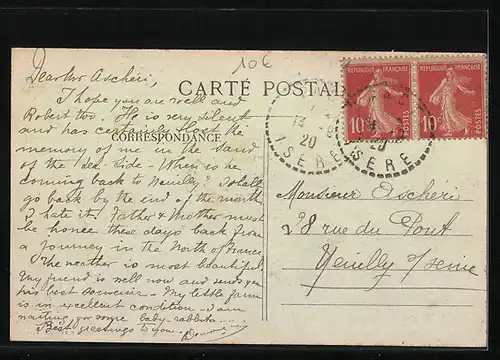 10€
Dear Mr Aschéri,
CARTE POSTALE
I hope you are well and
Robert too. He is very silent
and has certainly lost the
CORRESPONDANCE
memory of me in the sand
of the sea-side - When is he
coming back to Neuilly? I shall
go back by the end of the month
I hate it! Father & Mother must
be home these days back from
a journey in the North of France
The weather is most beautiful
My friend is well now and sends you
his best souvenir - My little farm
is in excellent condition - I am
waiting for some baby-rabbits
Best greetings to you -
REPUBLIQUE FRANÇAISE
10c
POSTES
REPUBLIQUE FRANÇAISE
10c
POSTES
20
ISERE
20
ISERE
Monsieur Aschéri
28 rue du Pont
Neuilly s/ Seine